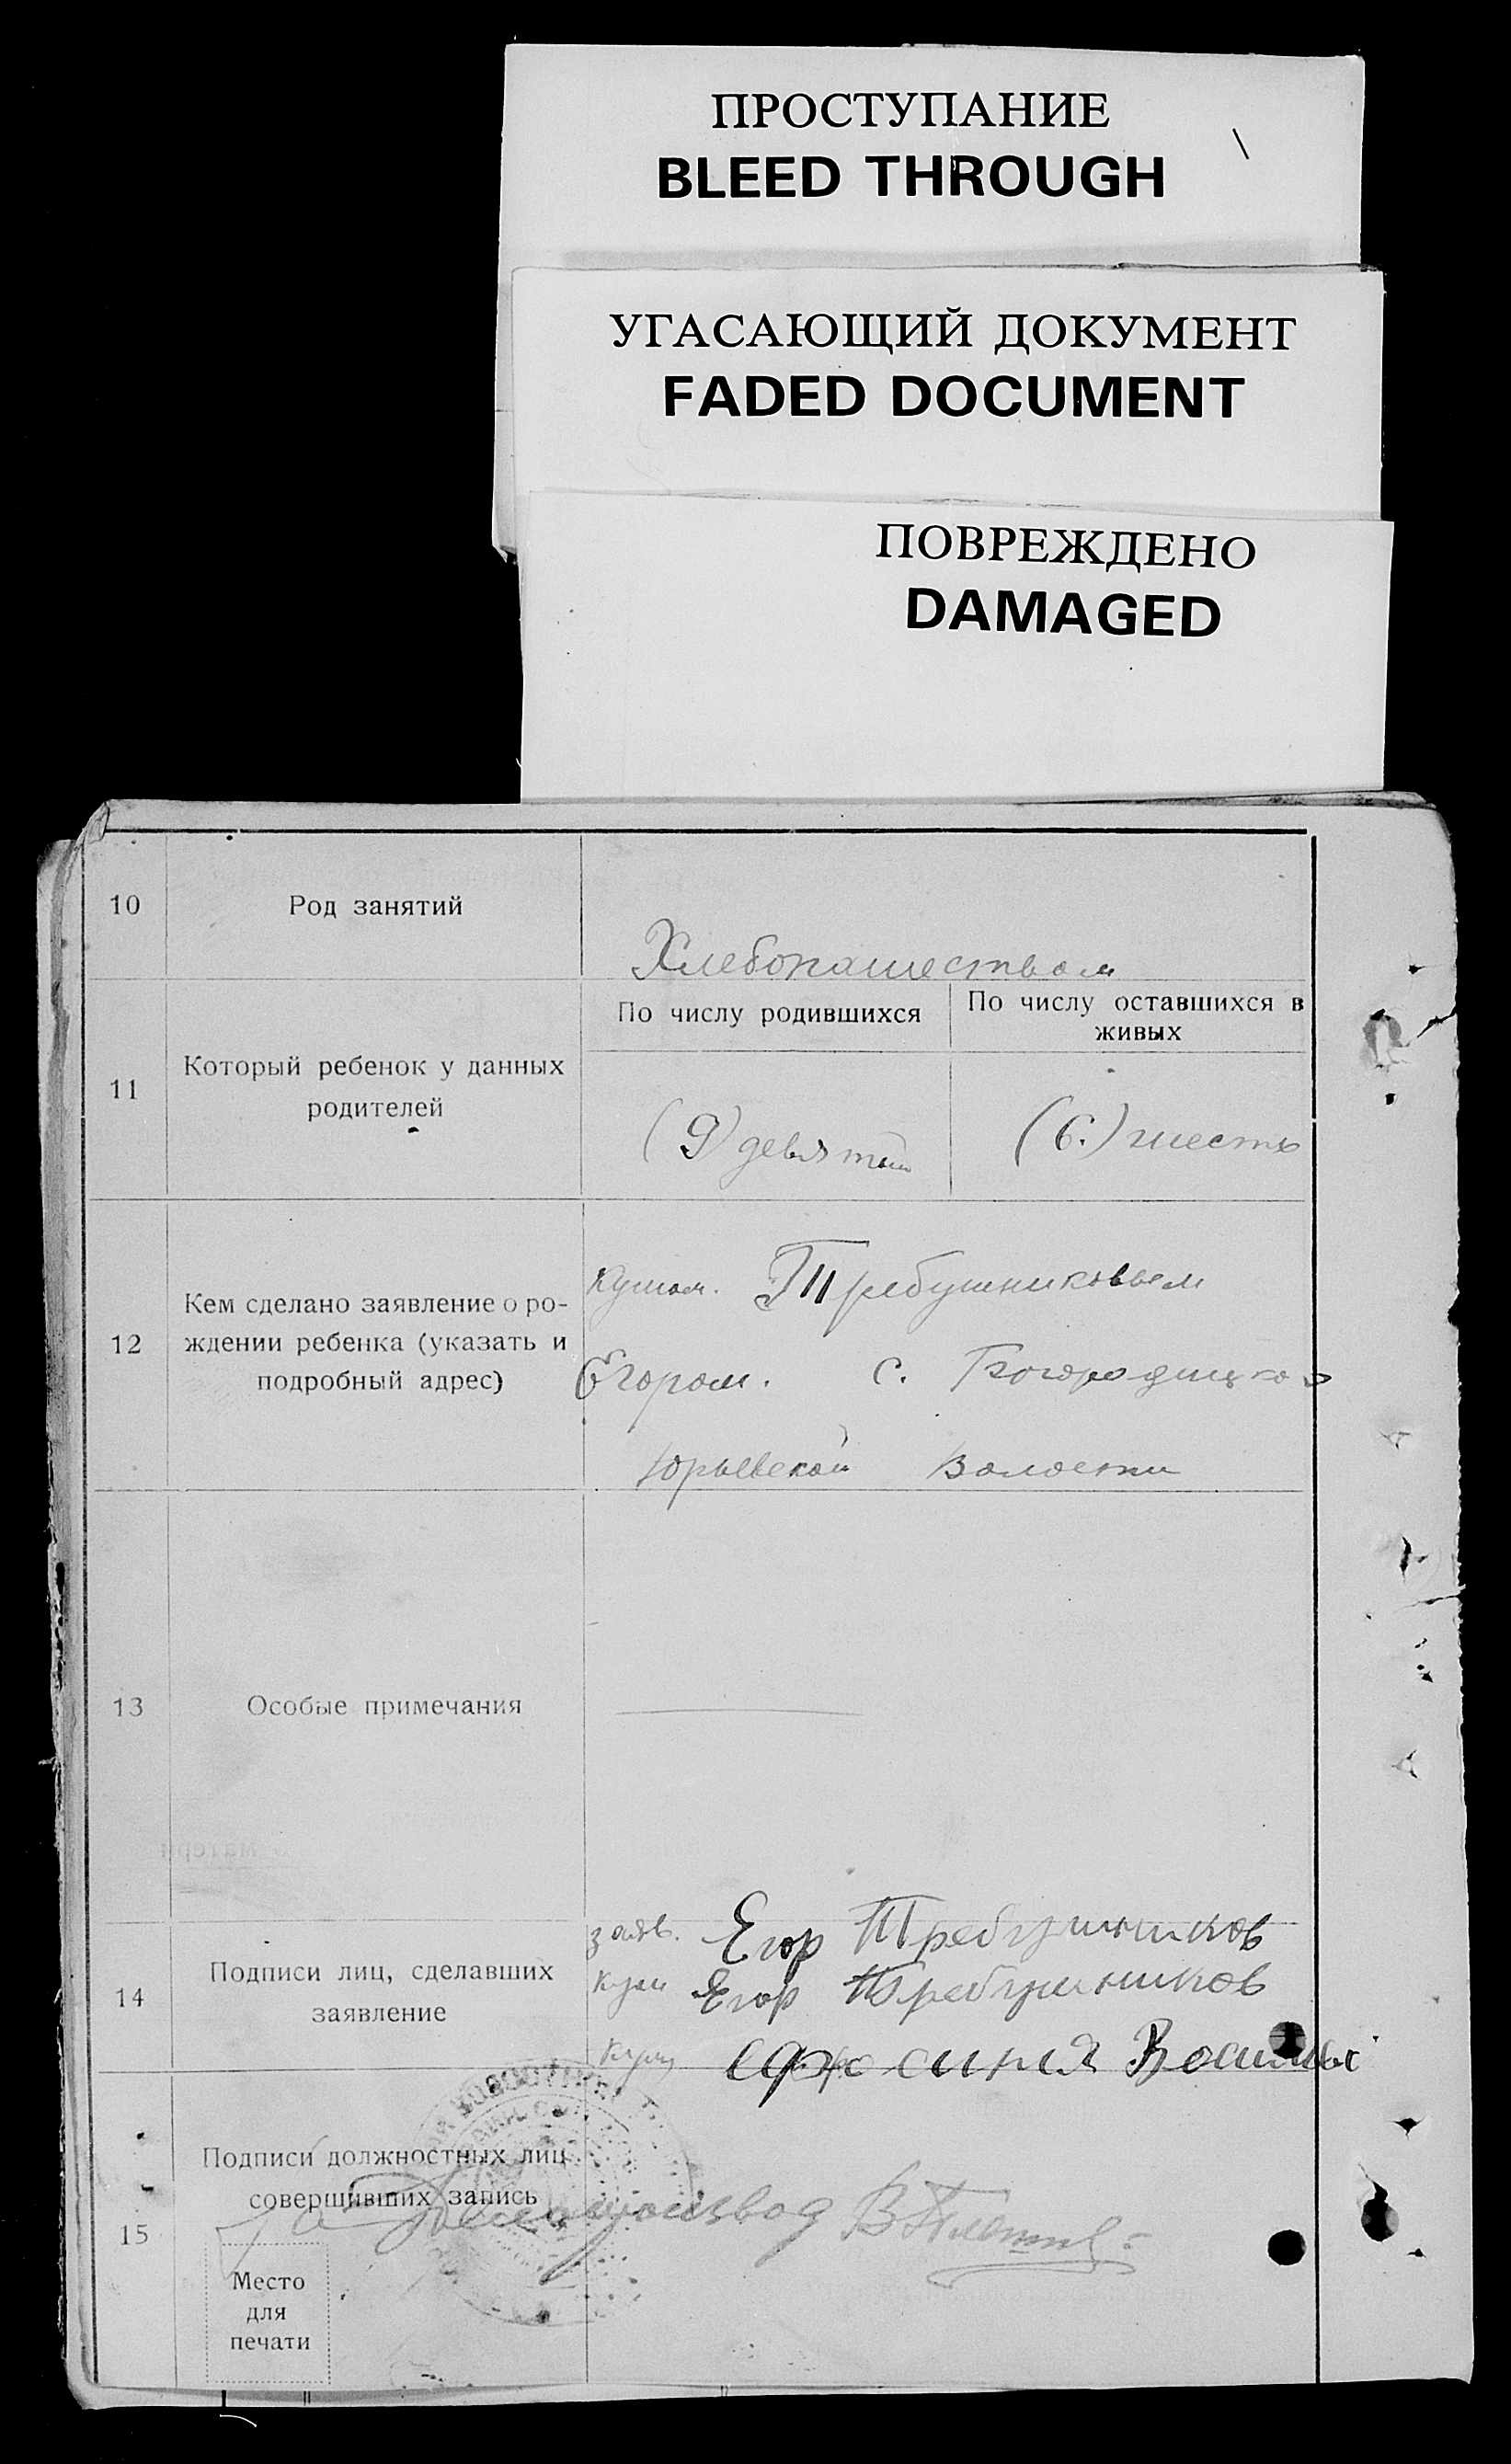 ПРОСТУПАНИЕ
BLEED THROUGH
УГАСАЮЩИЙ ДОКУМЕНТ
FADED DOCUMENT
ПОВРЕЖДЕНО
DAMAGED
10
Род занятий
Хлебопашеством
11
Который ребенок у данных
родителей
По числу родившихся
По числу оставшихся в
живых
(9) девятый
(6.) шесть
12
Кем сделано заявление о ро-
ждении ребенка (указать и
подробный адрес)
Кумом. Требушниковым
Егором. с. Богородицкое
Юрьевской Волости
13
Особые примечания
14
Подписи лиц, сделавших
заявление
заяв. Егор Требушников
Кум Егор Требушников
15
Подписи должностных лиц
совершивших запись
Делопроизвод
Место
для
печати